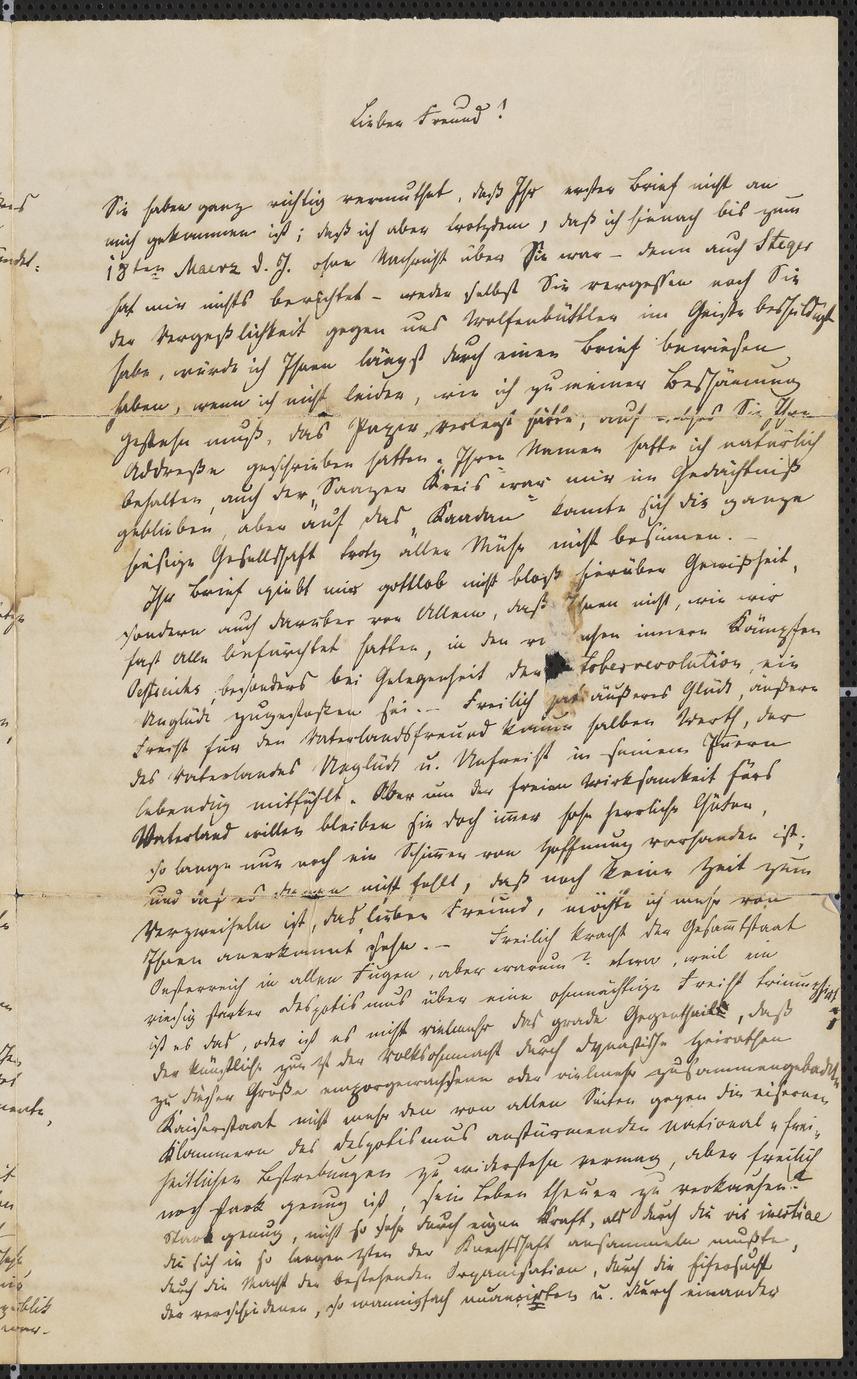 Lieber Freund!
Sie haben ganz richtig vermuthet, daß Ihr erster Brief nicht an
mich gekommen ist; daß ich aber trotzdem, daß ich hienach bis zum
18ten Maerz d. J. ohne Nachricht über Sie war – denn auch Steger
hat mir nichts berichtet – weder selbst Sie vergessen noch Sie
der Vergeßlichkeit gegen uns Wolfenbüttler im Geiste beschuldigt
habe, würde ich Ihnen längst durch einen Brief bewiesen
haben, wenn ich nicht leider, wie ich zu meiner Beschämung
gestehn muß, das Papier verlegt hätte, auf welches Sie Ihre
Addreße geschrieben hatten. Ihren Namen hatte ich natürlich
behalten, auch der „Saazer Kreis" war mir im Gedächtniß
geblieben, aber auf das „Kaadan" konnte sich die ganze
hiesige Gesellschaft trotz aller Mühe nicht besinnen. –
Ihr Brief giebt mir gottlob nicht bloß hierüber Gewißheit,
sondern auch darüber vor Allem, daß Ihnen nicht, wie wir
fast alle befürchtet hatten, in den innern Kämpfen
Oestreichs, besonders bei Gelegenheit der toberrevolution, ein
Unglück zugestoßen sei. – Freilich hat äußeres Glück, äußere
Freiht für den Vaterlandsfreund kaum halben Werth, der
des Vaterlandes Unglück u. Unfreiht in seinem Innern
lebendig mitfühlt. Aber um der freien Wirksamkeit fürs
Vaterland willen bleiben sie doch immer sehr herrliche Güter,
so lange nur noch ein Schimmer von Hoffnung vorhanden ist;
und daß es nicht fehlt, daß noch keine Zeit zum
Verzweifeln ist, das, lieber Freund, möchte ich mehr von
Ihnen anerkannt sehn. – Freilich kracht der Gesammtstaat
Oesterreich in allen Fugen, aber warum? etwa, weil ein
riesig starker Despotismus über eine ohnmächtige Freiht triumphirt
ist es das, oder ist es nicht vielmehr das grade Gegentheil, daß
der künstliche zur Zt der Volksohnmacht durch dynastische Heirathen
zu dieser Größe emporgewachsene oder vielmehr zusammengebackene
Kaiserstaat nicht mehr den von allen Seiten gegen die eisernen
Klammern des Despotismus anstürmenden national u. frei-
heitlichen Bestrebungen zu widerstehn vermag, aber freilich
noch stark genug ist, sein Leben theuer zu verkaufen?
stark genug, nicht so sehr durch eigne Kraft, als durch die vis inertiae
die sich in so langen Zten der Knechtschaft ansammeln mußte,
durch die Macht der bestehenden Organisation, durch die Eifersucht
der verschiedenen, so mannigfach nuancirten u. durch einander